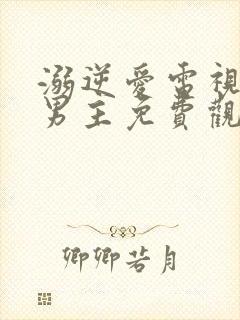 溺逆愛雷視
男主免費觀
卿卿若月